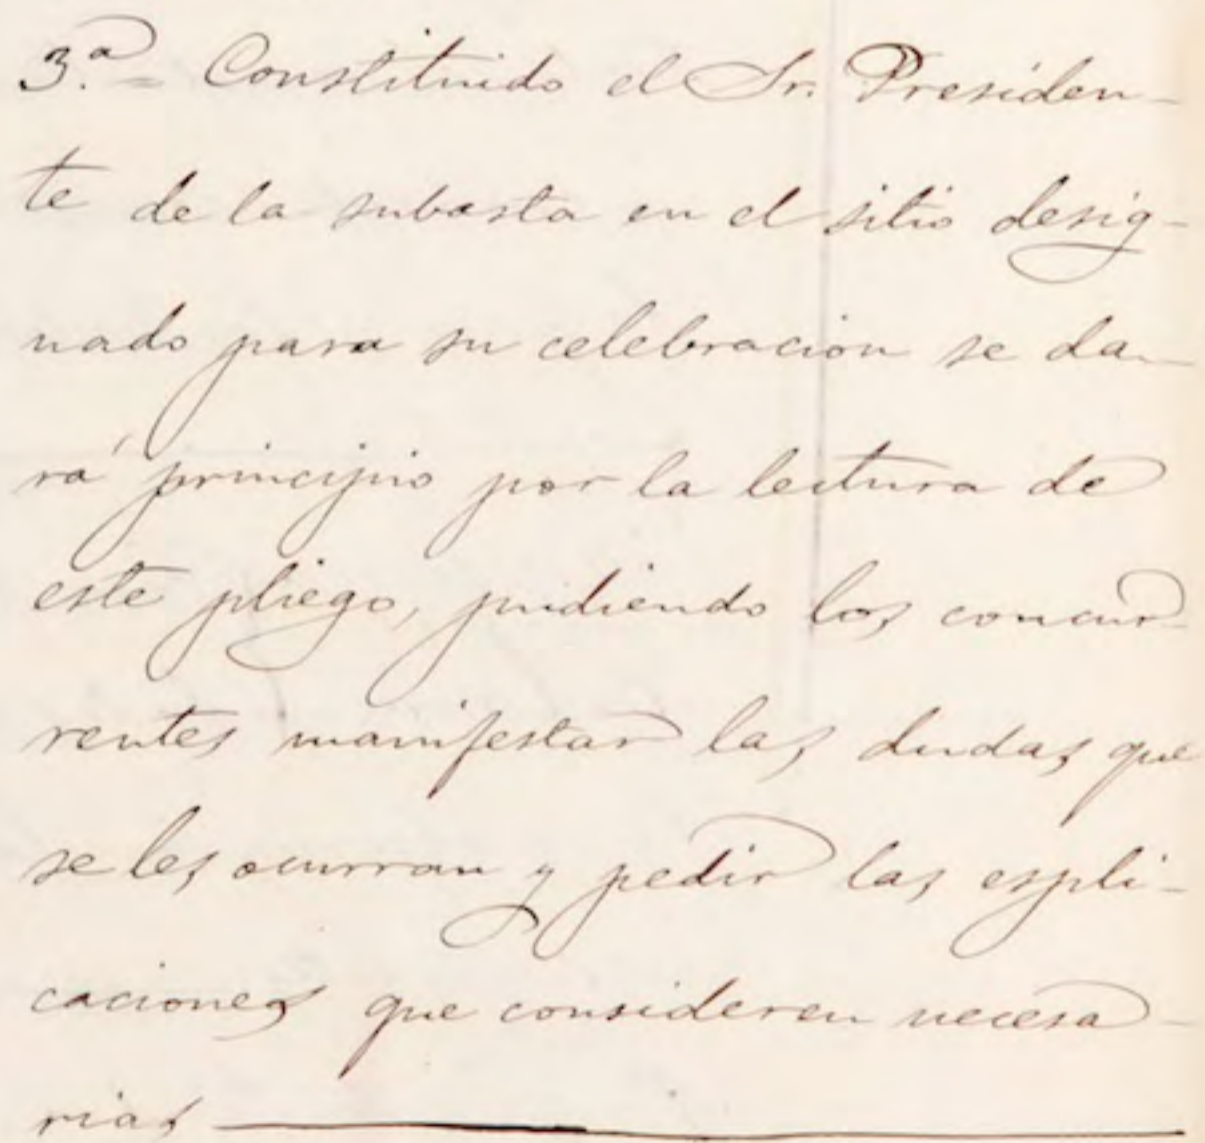 3.ª= Constituido el Sr. Presiden-
te de la subasta en el sitio desig-
nado para su celebracion se da-
rá principio por la lectura de
este pliego, pudiendo los concur-
rentes manifestar las dudas que
se les ocurran y pedir las espli-
caciones que consideren necesa-
rias